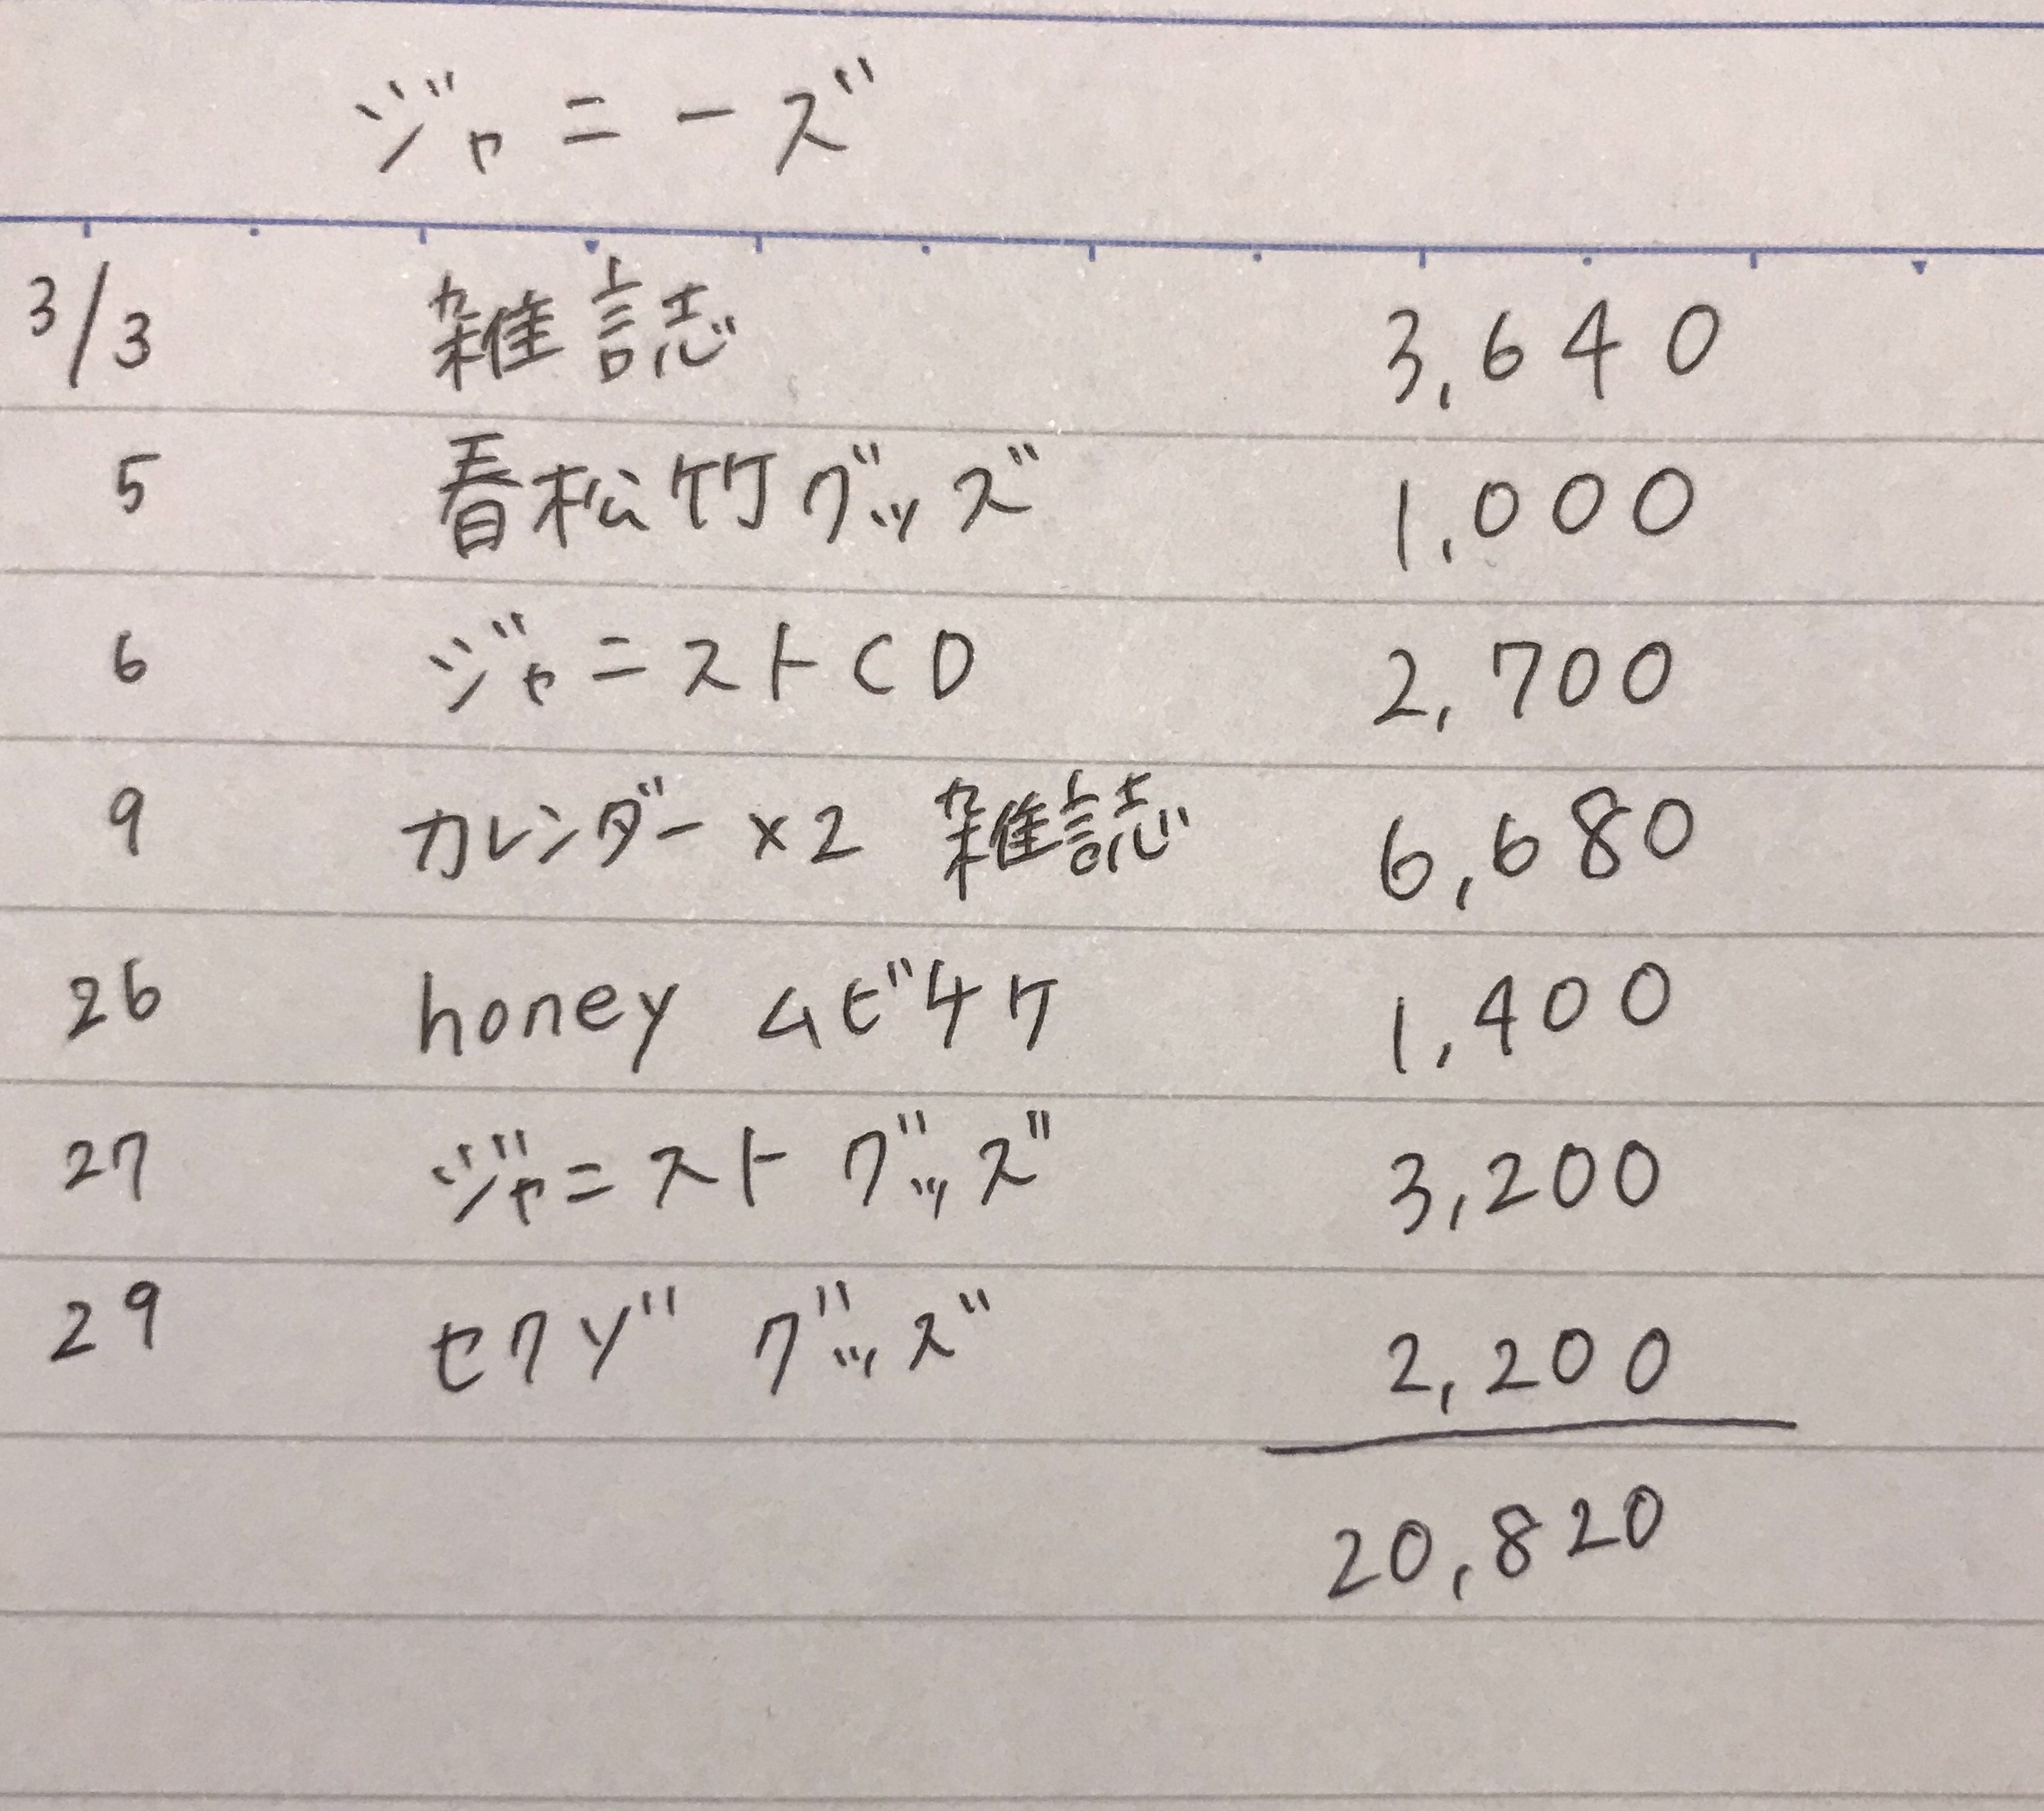 ジャニーズ
3/3 雑誌 3,640
5 春松竹グッズ 1,000
6 ジャニストCD 2,700
9 カレンダー×2 雑誌 6,680
26 honey ムビチケ 1,400
27 ジャニスト グッズ 3,200
29 セクゾ グッズ 2,200
20,820